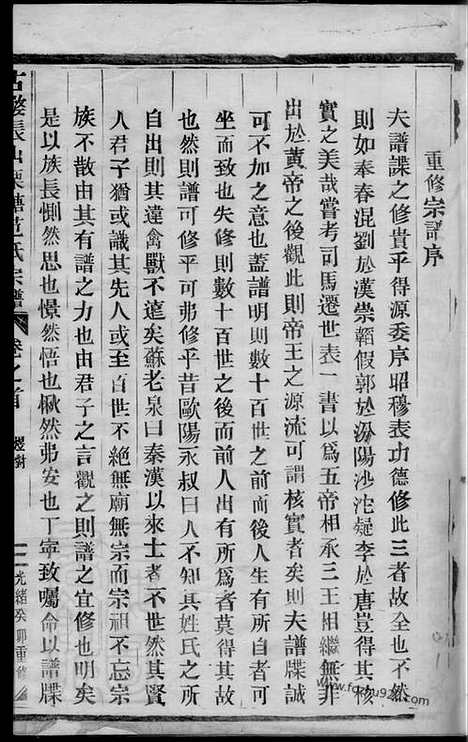 重修宗譜序
夫譜諜之修貴乎得源委序昭穆表功德修此三者故全也不然
則如奉春混劉於漢崇韜假郭於汾陽沙沱疑李於唐豈得其核
實之美哉嘗考司馬遷世表一書以為五帝相承三王相繼無非
出於黃帝之後觀此則帝王之源流可謂核實者矣則夫譜牒誠
可不加之意也蓋譜明則數十百世而前前而後人生有所
坐而致也失修則數十百世之後而前人出有所為者莫得其故
也然則譜可修乎可弗修乎昔歐陽永叔曰人不知其姓氏之所
自出則其違禽獸不遠矣蘇老泉曰秦漢以來士者不世然其賢
人君子猶或識其先人或至百世不絕無廟無宗而宗祖不忘宗
族不散由其有譜之力也由君子之言觀之則譜之宜修也明矣
是以族長惻然思也憬然悟也愀然弗安也丁寧致囑命以譜牒
古婺長山栗塘范氏宗譜
卷之首
光緒癸卯重修
www.foxu92.com